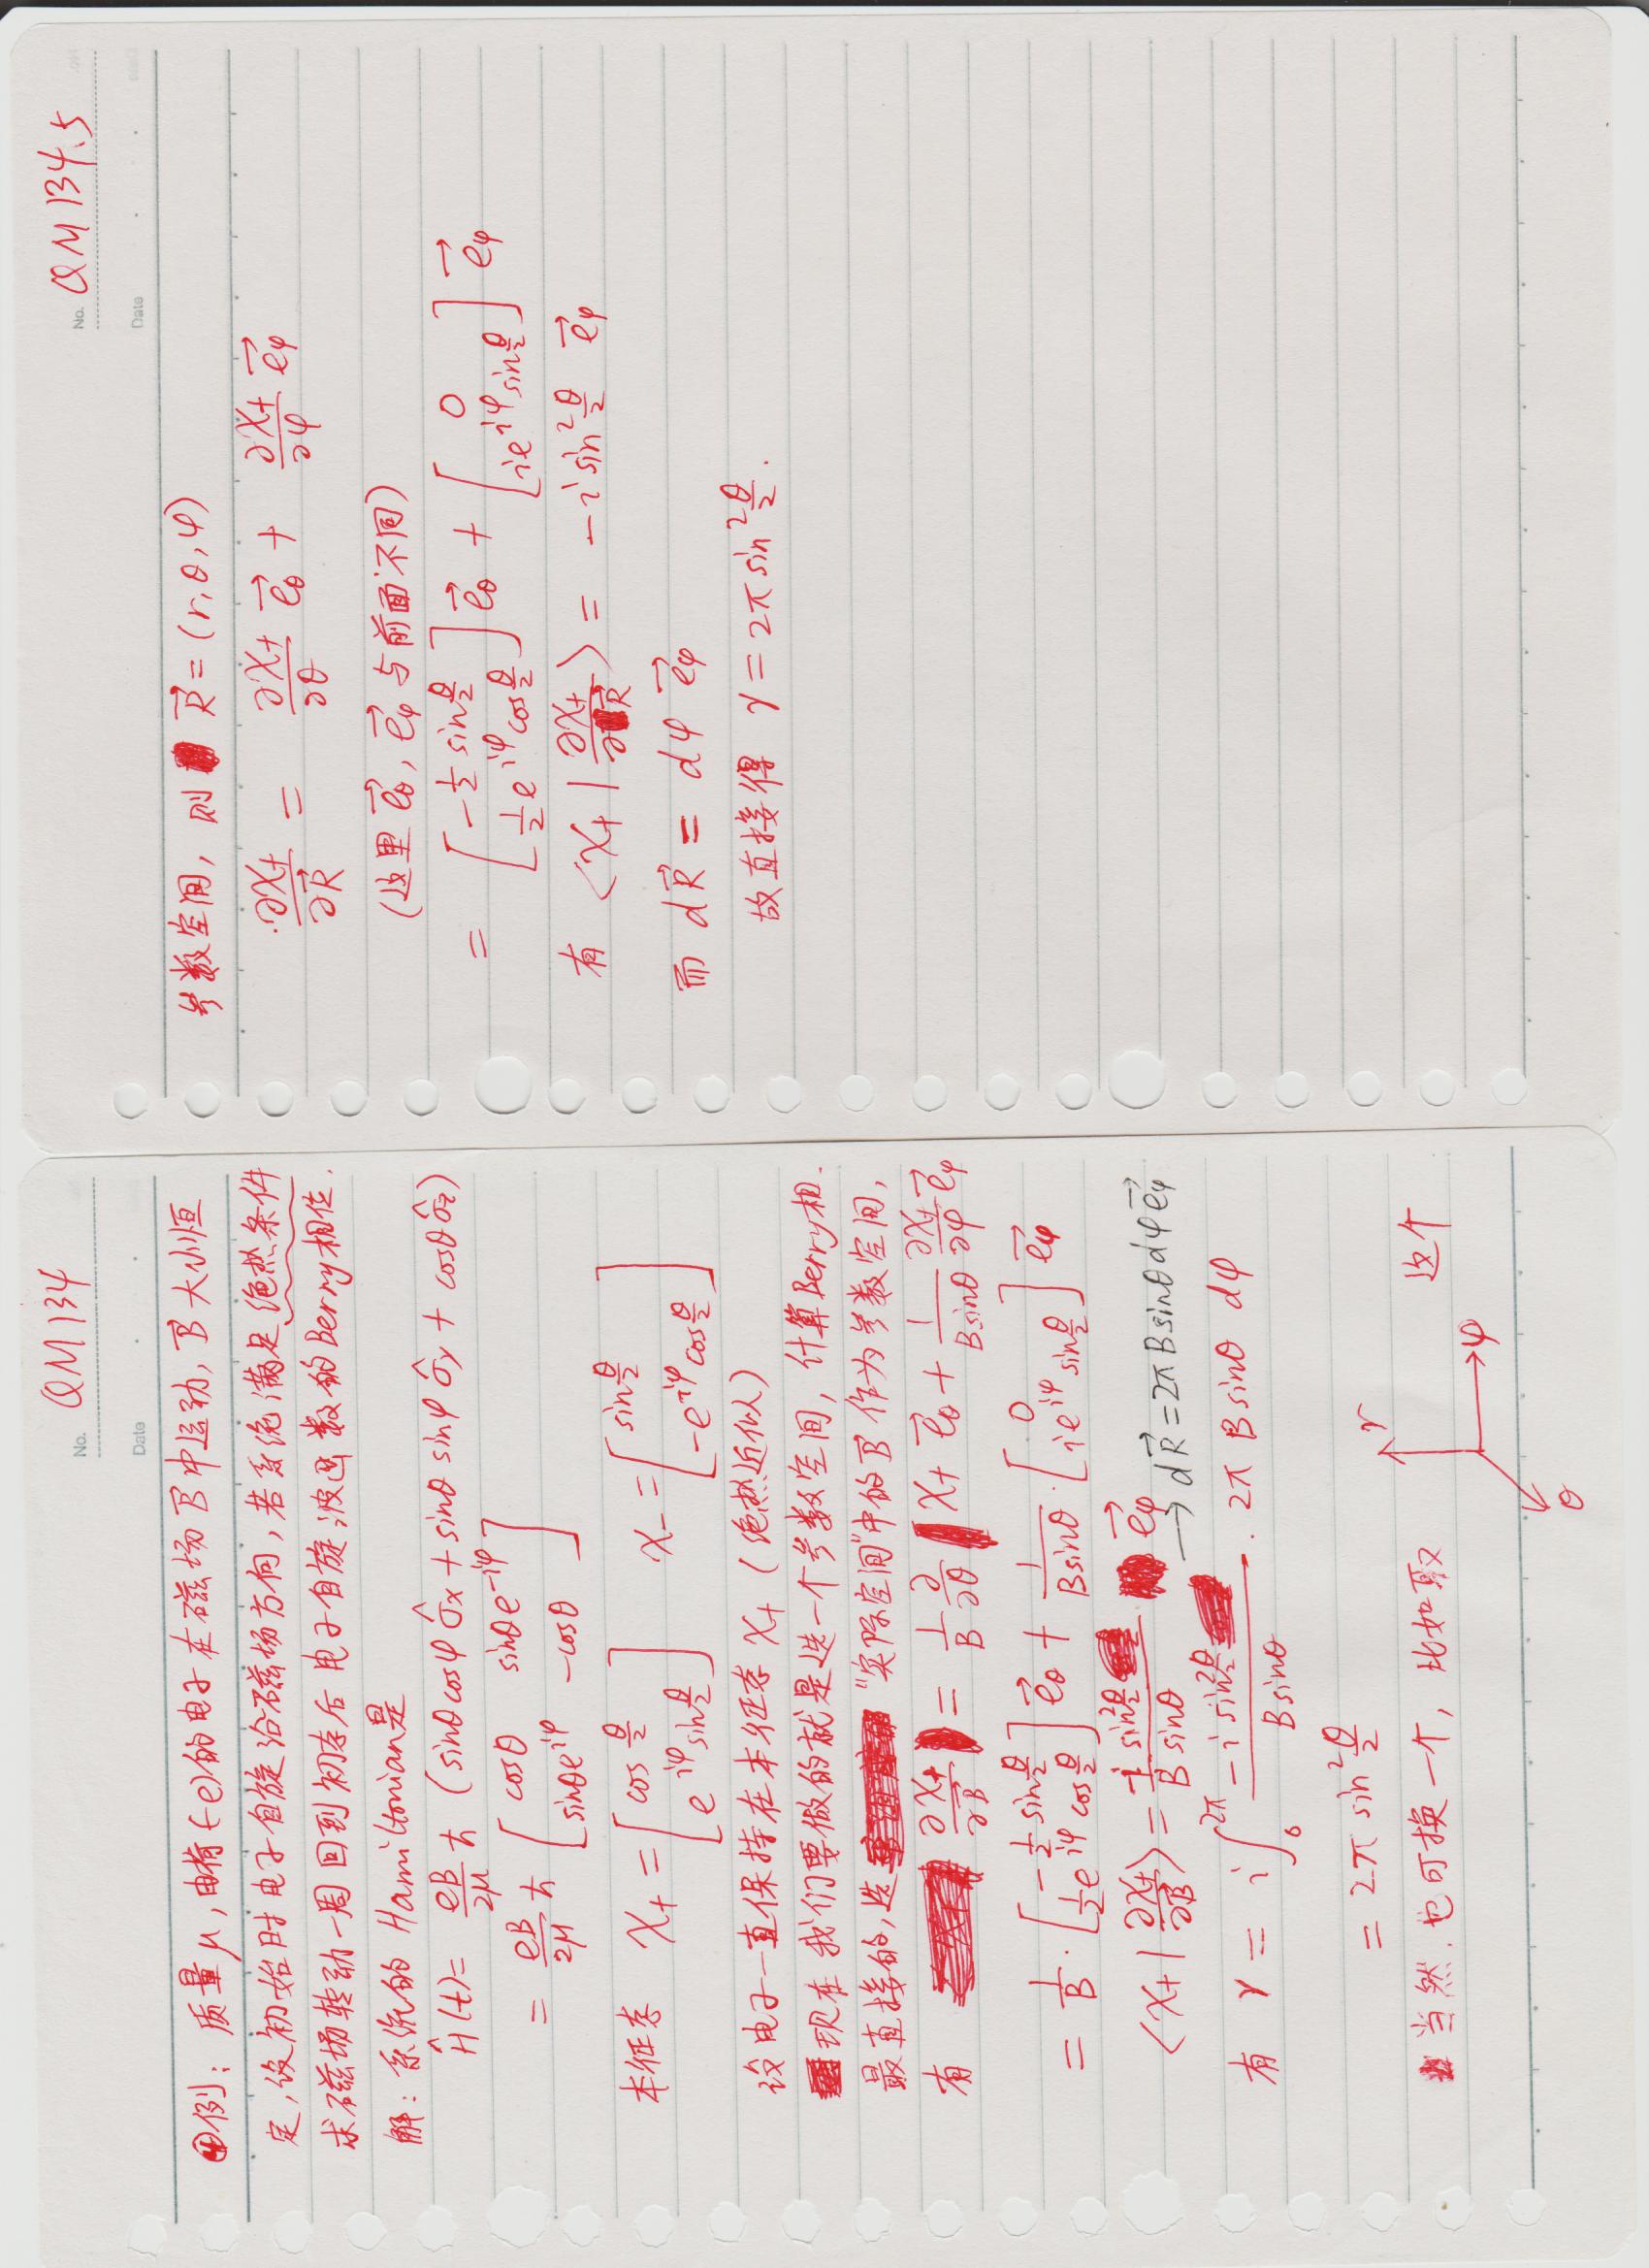 No. QM134
Date
④例: 质量μ, 电荷(-e)的电子在磁场 $\vec{B}$ 中运动, $\vec{B}$ 大小恒
定, 设初始时电子自旋沿磁场方向, 若系统满足绝热条件
求磁场转动一周回到初态后电子自旋波函数的Berry相位.
解: 系统的 Hamiltonian是
$\hat{H}(t) = \frac{eB}{2\mu}\hbar (\sin\theta\cos\varphi\,\hat{\sigma}_x + \sin\theta\sin\varphi\,\hat{\sigma}_y + \cos\theta\,\hat{\sigma}_z)$
$= \frac{eB}{2\mu}\hbar \begin{bmatrix} \cos\theta & \sin\theta e^{-i\varphi} \\ \sin\theta e^{i\varphi} & -\cos\theta \end{bmatrix}$
本征态 $\chi_+ = \begin{bmatrix} \cos\frac{\theta}{2} \\ e^{i\varphi}\sin\frac{\theta}{2} \end{bmatrix}$ $\chi_- = \begin{bmatrix} \sin\frac{\theta}{2} \\ -e^{i\varphi}\cos\frac{\theta}{2} \end{bmatrix}$
设电子一直保持在本征态 $\chi_+$ (绝热近似)
现在我们要做的就是选一个参数空间, 计算Berry相.
最直接的, 选 "实际空间"中的 $\vec{B}$ 作为参数空间,
有 $\frac{\partial\chi_+}{\partial\vec{B}} = \frac{1}{B}\frac{\partial}{\partial\theta}\chi_+ \vec{e}_\theta + \frac{1}{B\sin\theta}\frac{\partial\chi_+}{\partial\varphi}\vec{e}_\varphi$
$= \frac{1}{B} \cdot \begin{bmatrix} -\frac{1}{2}\sin\frac{\theta}{2} \\ \frac{1}{2}e^{i\varphi}\cos\frac{\theta}{2} \end{bmatrix} \vec{e}_\theta + \frac{1}{B\sin\theta} \cdot \begin{bmatrix} 0 \\ ie^{i\varphi}\sin\frac{\theta}{2} \end{bmatrix} \vec{e}_\varphi$
$\langle\chi_+|\frac{\partial\chi_+}{\partial\vec{B}}\rangle = \frac{-i\sin^2\frac{\theta}{2}}{B\sin\theta} \vec{e}_\varphi$
$\rightarrow d\vec{R} = 2\pi B\sin\theta d\varphi \vec{e}_\varphi$
有 $\gamma = i\int_0^{2\pi} \frac{-i\sin^2\frac{\theta}{2}}{B\sin\theta} \cdot 2\pi B\sin\theta\, d\varphi$
$= 2\pi \sin^2\frac{\theta}{2}$
当然, 也可换一个, 比如取 r φ θ 这个
No. QM134.5
Date
参数空间, 则 $\vec{R} = (r, \theta, \varphi)$
$\frac{\partial\chi_+}{\partial\vec{R}} = \frac{\partial\chi_+}{\partial\theta}\vec{e}_\theta + \frac{\partial\chi_+}{\partial\varphi}\vec{e}_\varphi$
(这里 $\vec{e}_\theta$, $\vec{e}_\varphi$ 与前面不同)
$= \begin{bmatrix} -\frac{1}{2}\sin\frac{\theta}{2} \\ \frac{1}{2}e^{i\varphi}\cos\frac{\theta}{2} \end{bmatrix} \vec{e}_\theta + \begin{bmatrix} 0 \\ ie^{i\varphi}\sin\frac{\theta}{2} \end{bmatrix} \vec{e}_\varphi$
有 $\langle\chi_+|\frac{\partial\chi_+}{\partial\vec{R}}\rangle = -i\sin^2\frac{\theta}{2}\, \vec{e}_\varphi$
而 $d\vec{R} = d\varphi\, \vec{e}_\varphi$
故直接得 $\gamma = 2\pi\sin^2\frac{\theta}{2}$.